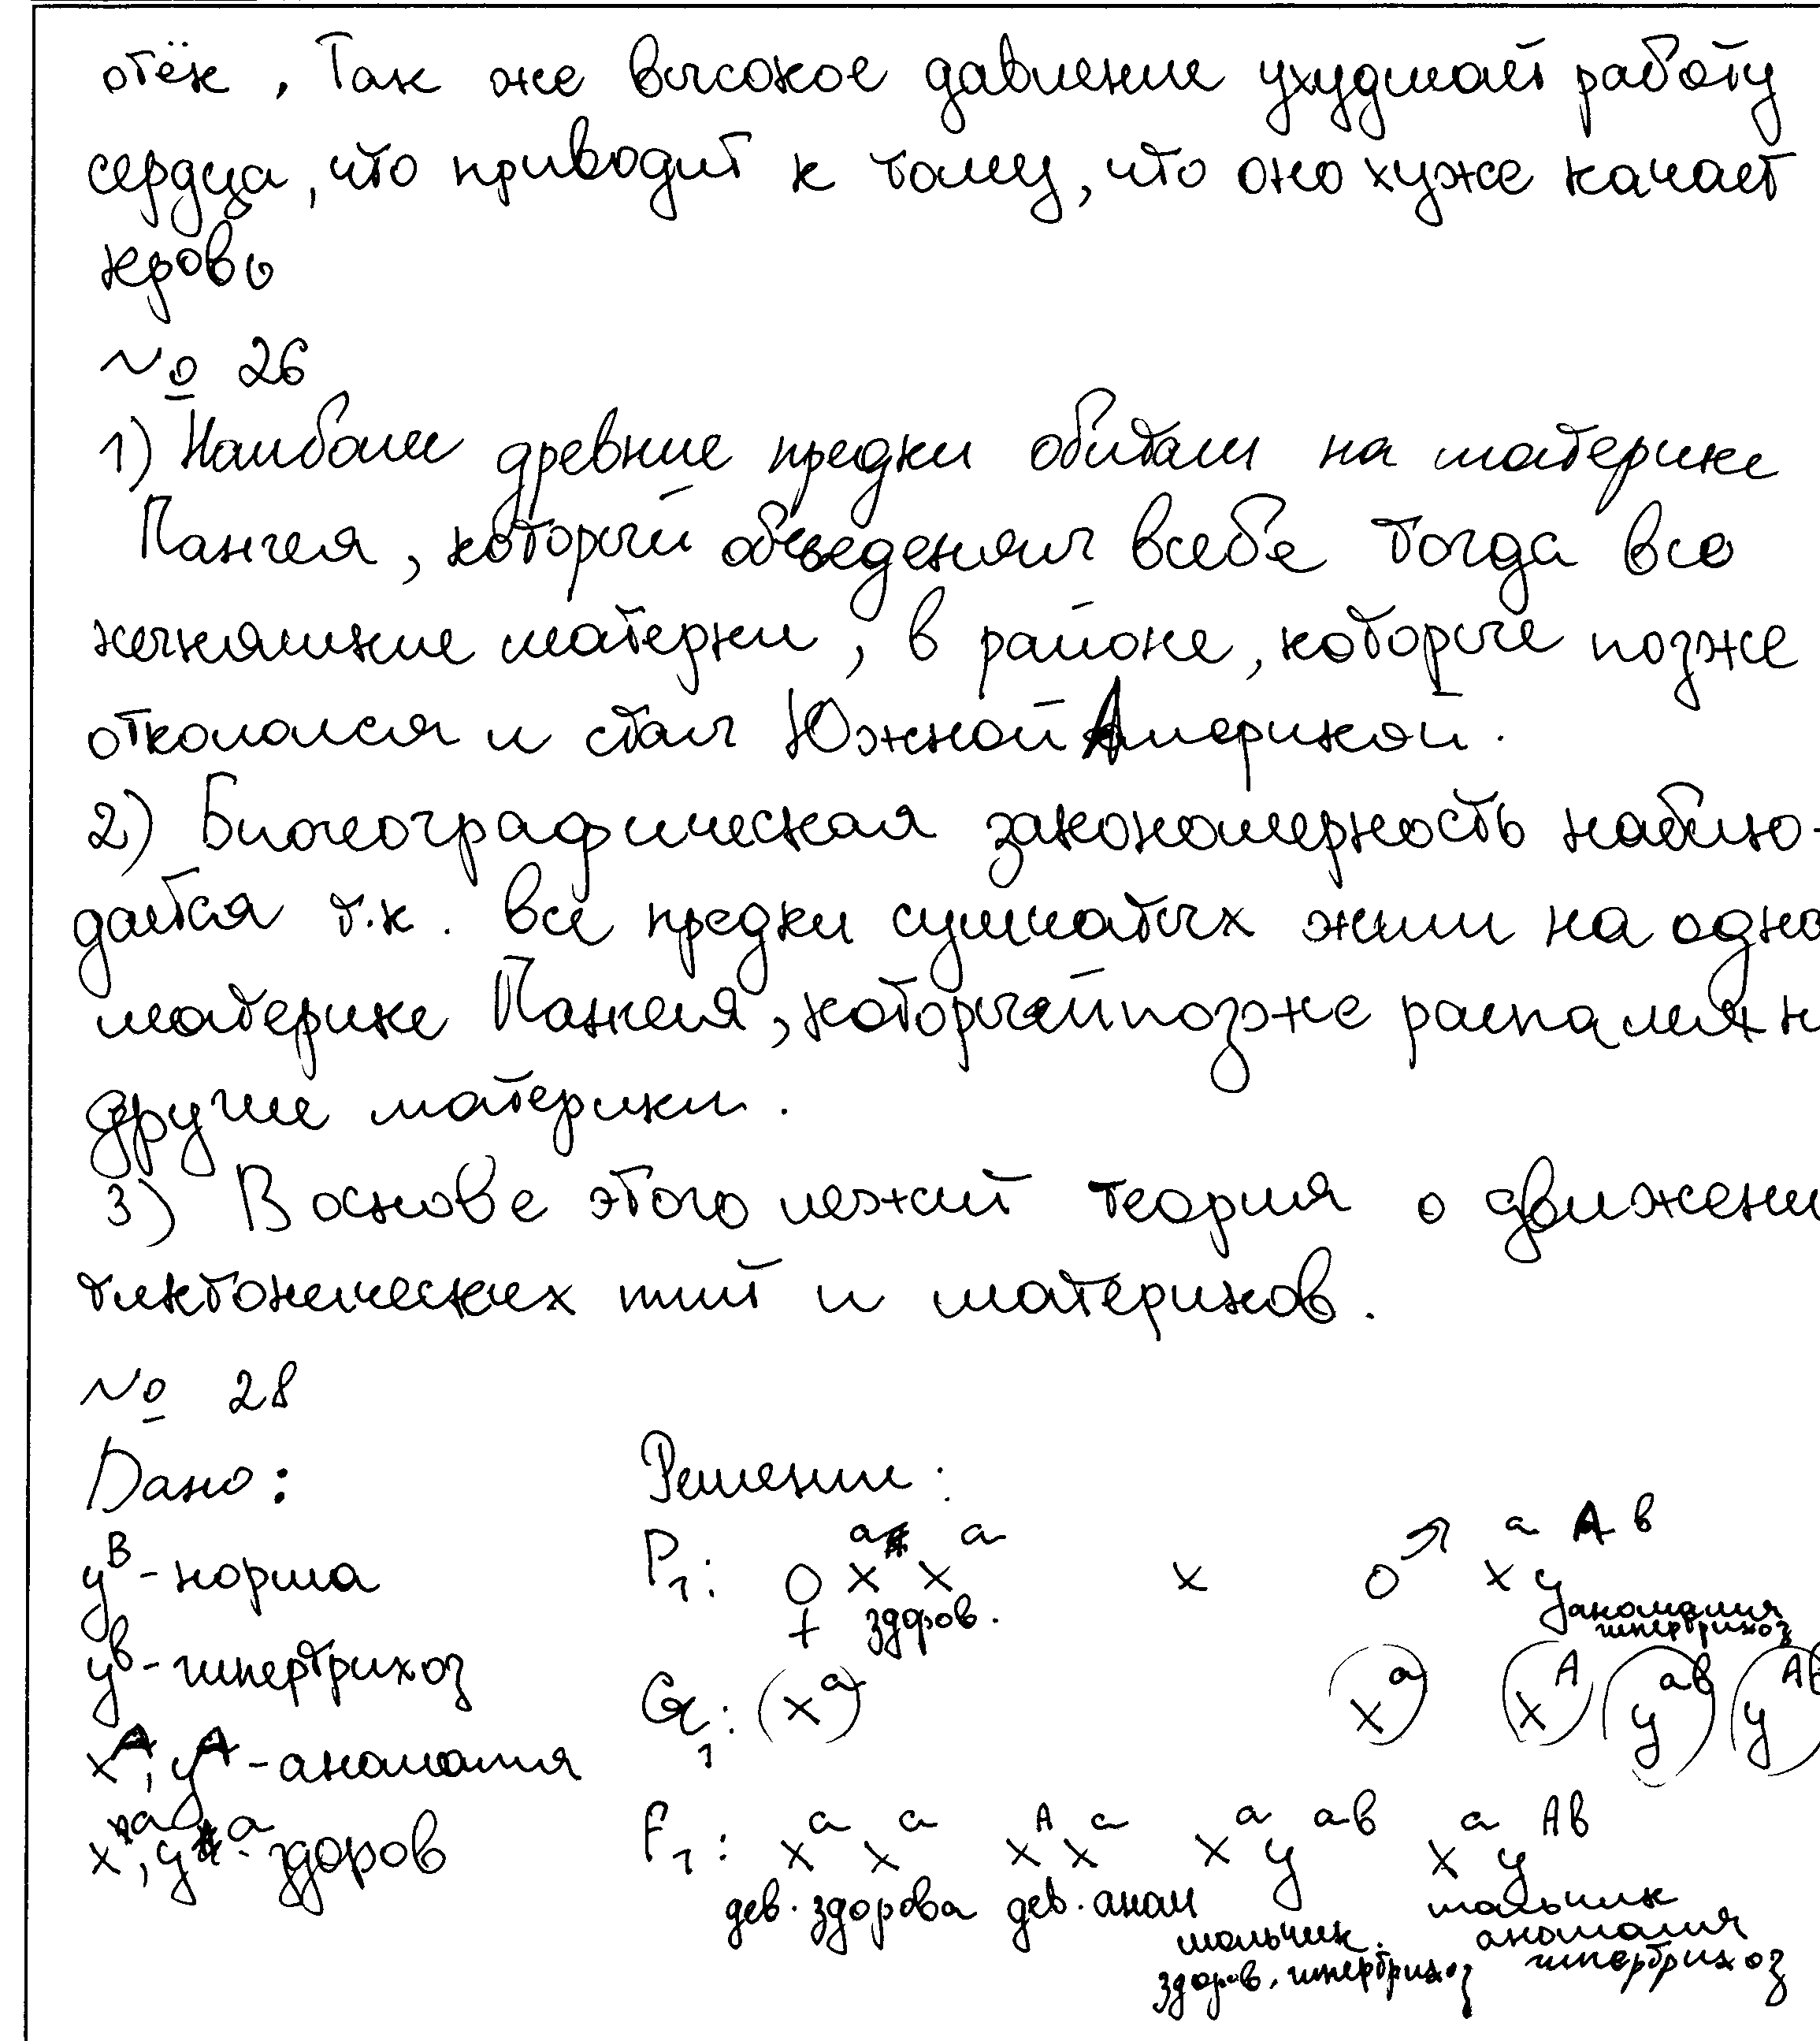 отёк, Так же высокое давление ухудшает работу
сердца, что приводит к тому, что оно хуже качает
кровь
№ 26
1) Наиболее древние предки обитали на материке
Пангея, который объеденял всебе тогда все
нынешние матерки, в районе, которые позже
откололся и стал Южной Америкой.
2) Биогеографическая закономерность наблю-
дается т.к. все предки сумчатых жили на одно
материке Пангея, который позже распался н
другие материки.
3) В основе этого лежит теория о движени
тектонических плит и материков.
№ 28
Дано: Решение:
y^B - норма P₁: ♀ x^a x^a x ♂ x^a y^Aв
здоров. аномалия гипертрихоз
y^в - гипертрихоз G₁: (x^a) (x^a) (x^A) (y^aв) (y^Aв
x^A, y^A - аномалия
x^a, y^a - здоров F₁: x^a x^a x^A x^a x^a y^aв x^a y^Aв
дев. здорова дев. аном мальчик здоров, гипертрихоз мальчик аномалия гипертрихоз